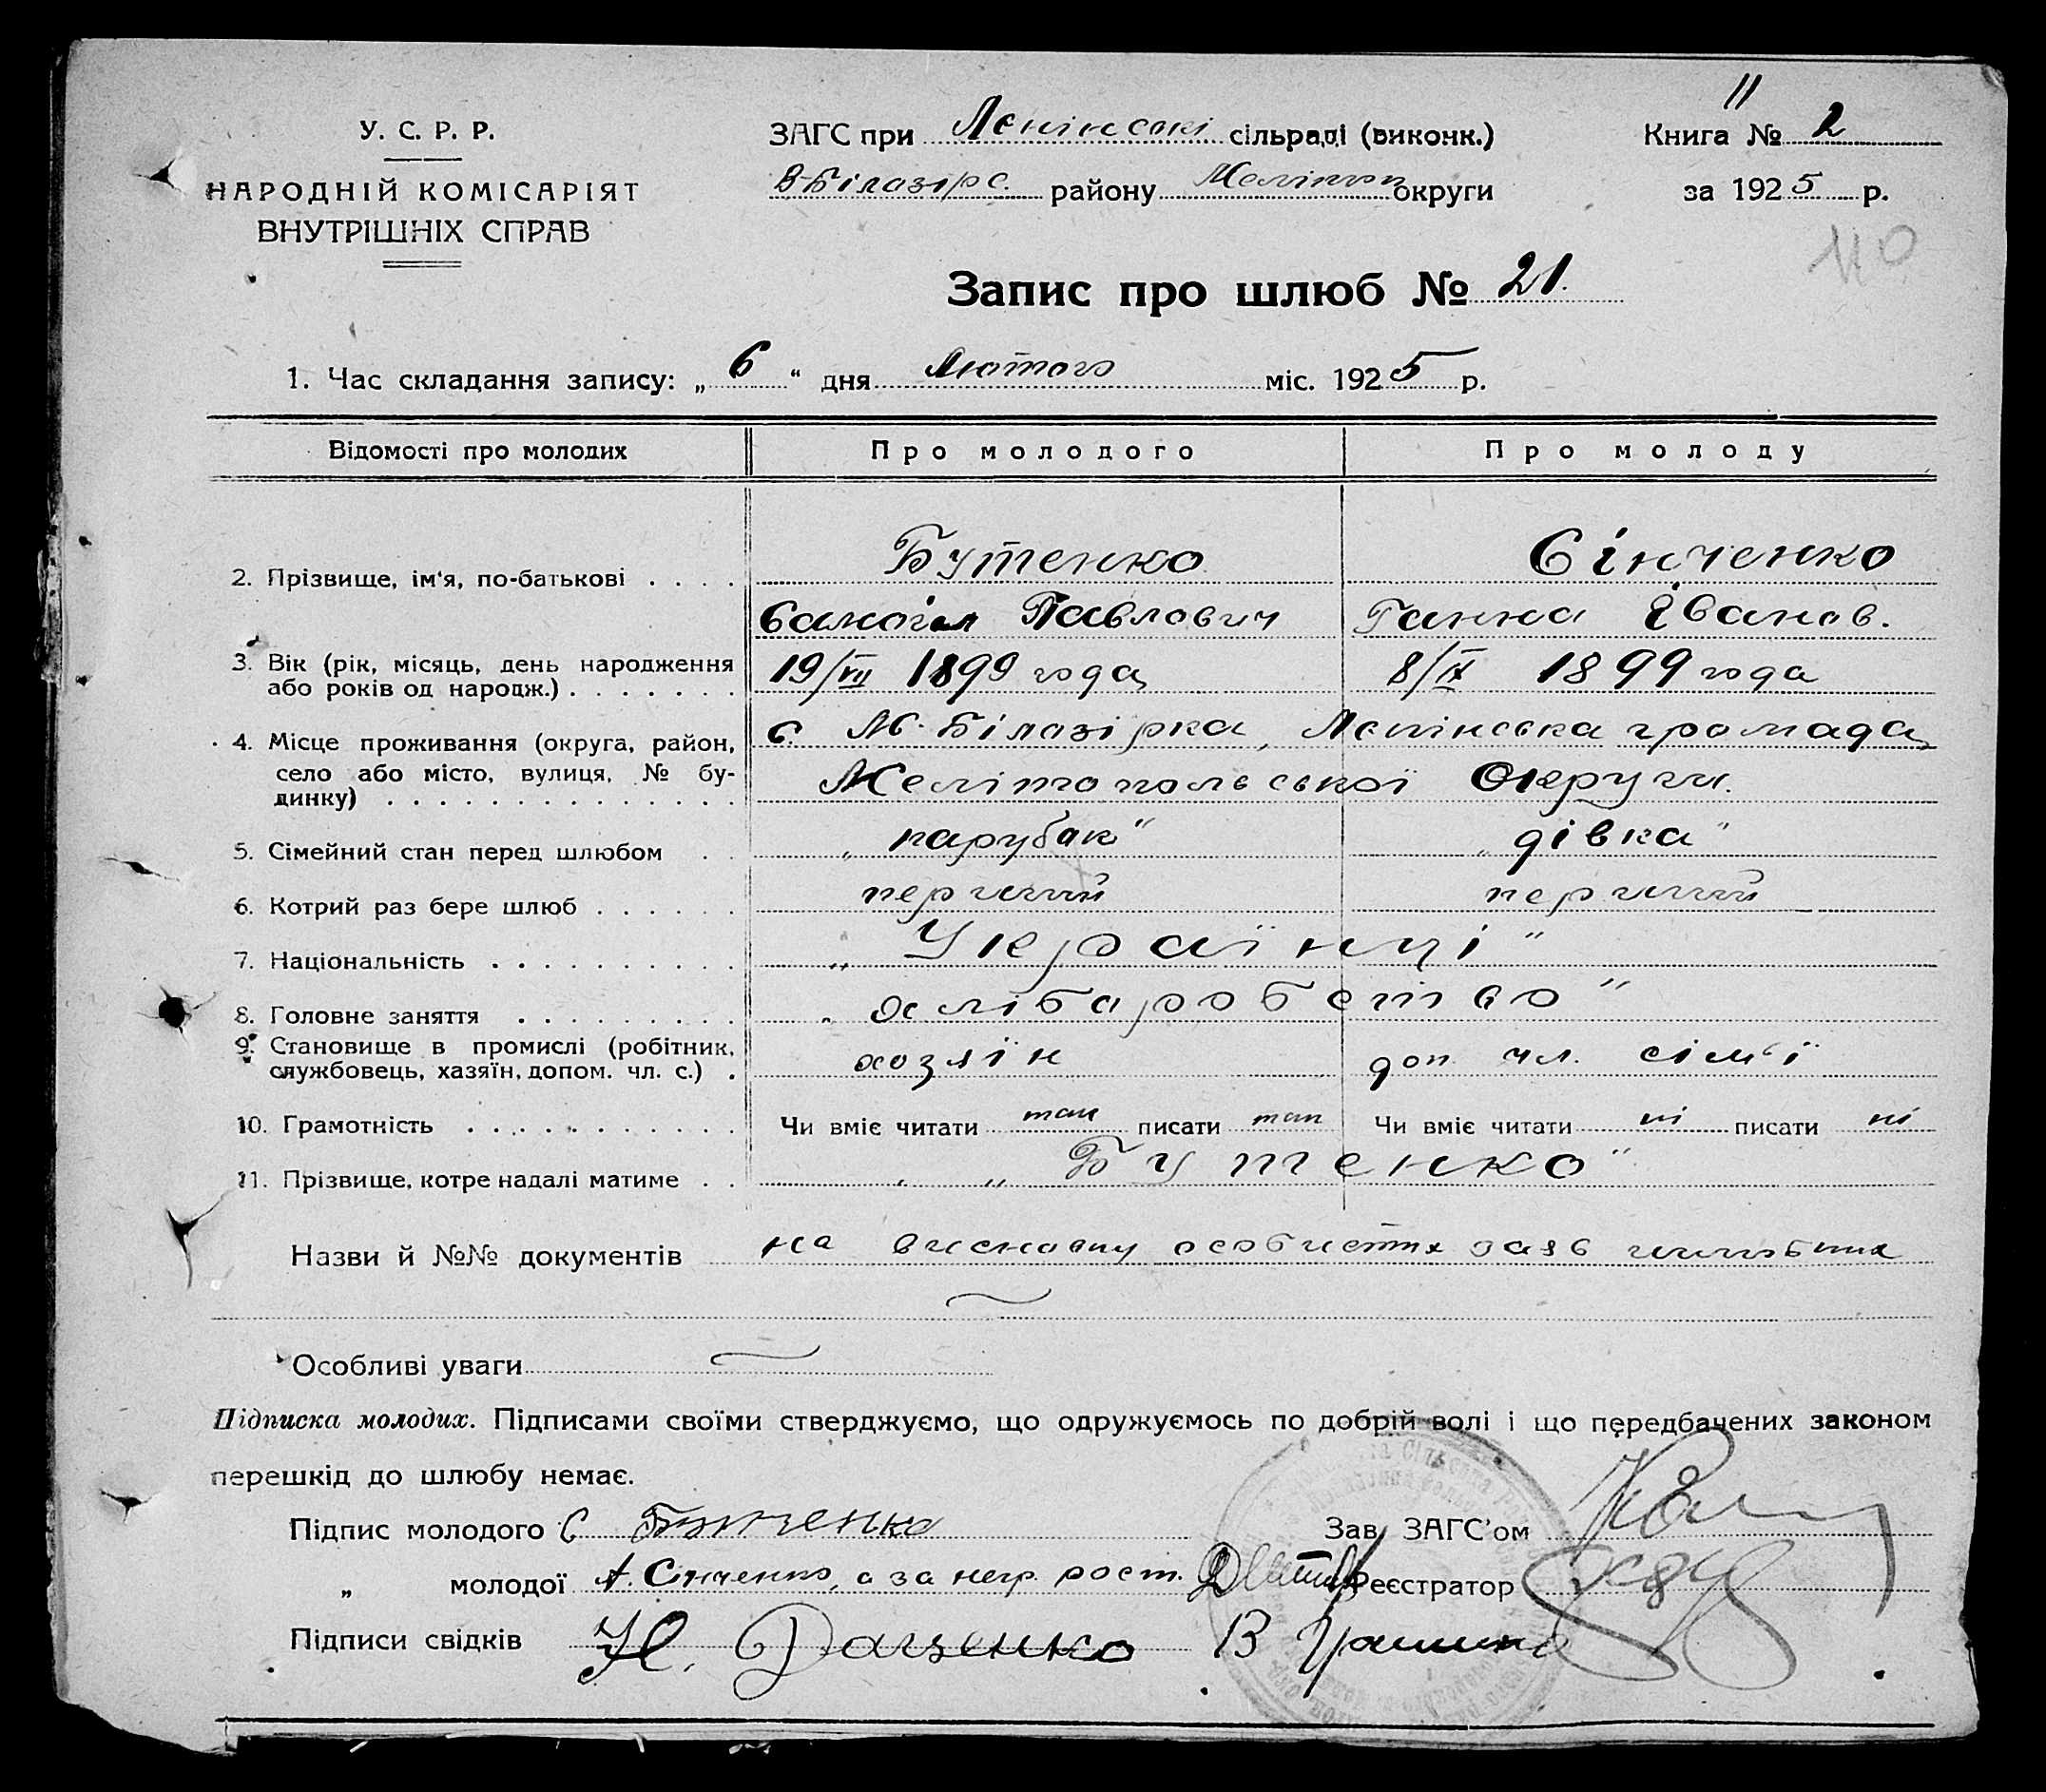 11
У. С. Р. Р.
ЗАГС при Ленінські сільраді (виконк.)
Книга № 2
НАРОДНІЙ КОМІСАРІЯТ
В-Білозірс. району Меліточ округи
за 1925 р.
ВНУТРІШНІХ СПРАВ
110
Запис про шлюб № 21.
1. Час складання запису: „ 6 “ дня Лютого міс. 1925 р.
Відомості про молодих Про молодого Про молоду
Бутенко Сінченко
2. Прізвище, ім'я, по-батькові . . . .
Самоіл Павлович Ганна Іванов.
3. Вік (рік, місяць, день народження 19/VII 1899 года 8/IX 1899 года
або років од народж.) . . . . . . .
4. Місце проживання (округа, район, с. М. Білозірка, Ленінська громада
село або місто, вулиця, № бу- Мелітопольської Округи.
динку) . . . . . . . . . . . . . .
5. Сімейний стан перед шлюбом . . „парубак“ „дівка“
6. Котрий раз бере шлюб . . . . . . перший перший
7. Національність . . . . . . . . . . „Українці“
8. Головне заняття . . . . . . . . . „хліборобство“
9. Становище в промислі (робітник, хозяїн доп. чл. сім'ї
службовець, хазяїн, допом. чл. с.) .
10. Грамотність . . . . . . . . . . . Чи вміє читати так писати так Чи вміє читати ні писати ні
11. Прізвище, котре надалі матиме . . „Бутенко“
Назви й №№ документів на основу особистих заяв
Особливі уваги
Підписка молодих. Підписами своїми стверджуємо, що одружуємось по добрій волі і що передбачених законом
перешкід до шлюбу немає.
Підпис молодого С Бутченко Зав. ЗАГС'ом
„ молодої А. Синченко, а за негр. рост. Реєстратор
Підписи свідків Н. Даценко В